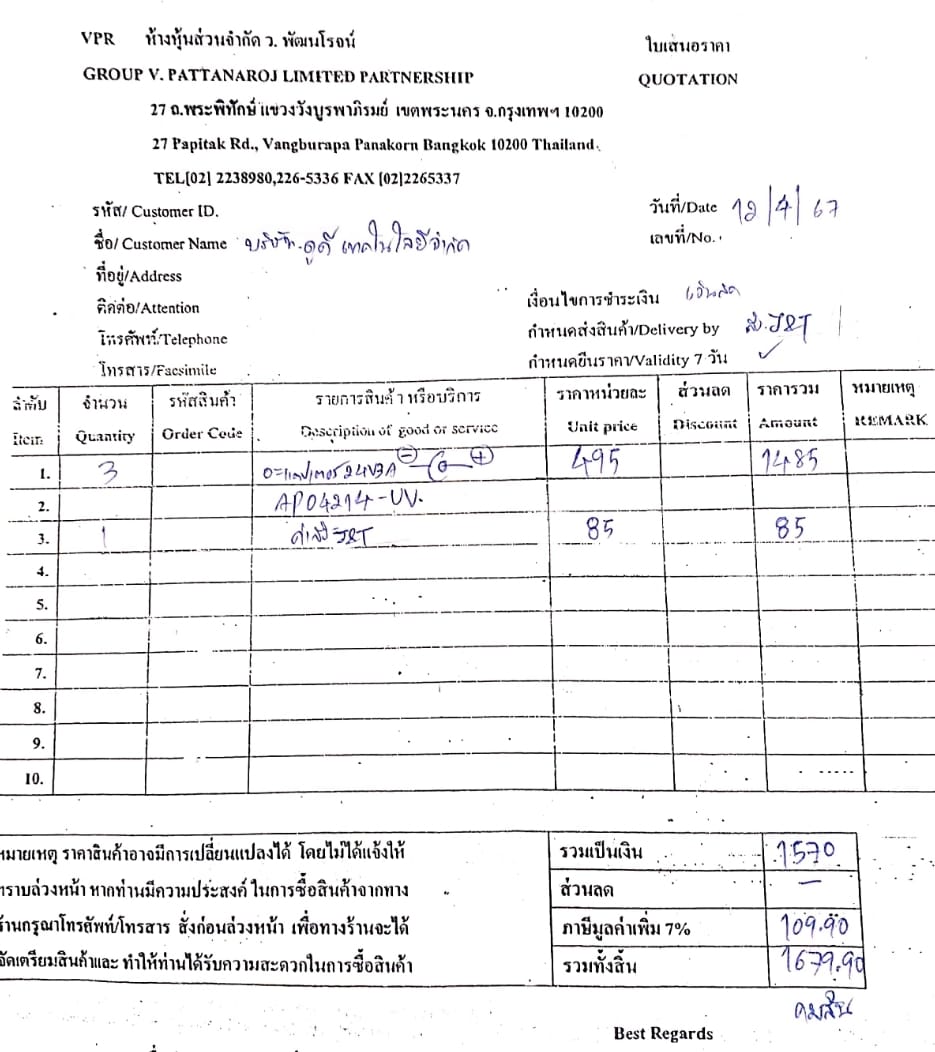 VPR ห้างหุ้นส่วนจำกัด ว. พัฒนโรจน์
ใบเสนอราคา
GROUP V. PATTANAROJ LIMITED PARTNERSHIP
QUOTATION
27 ถ.พระพิทักษ์ แขวงวังบูรพาภิรมย์ เขตพระนคร จ.กรุงเทพฯ 10200
27 Papitak Rd., Vangburapa Panakorn Bangkok 10200 Thailand.
TEL[02] 2238980,226-5336 FAX [02]2265337
รหัส/ Customer ID.
วันที่/Date 12/4/67
ชื่อ/ Customer Name บริษัท.ดูดี เทคโนโลยีจำกัด
เลขที่/No.
ที่อยู่/Address
ติดต่อ/Attention
เงื่อนไขการชำระเงิน เงินสด
โทรศัพท์/Telephone
กำหนดส่งสินค้า/Delivery by ส่ง.J&T
โทรสาร/Facsimile
กำหนดยืนราคา/Validity 7 วัน ✓
ลำดับ จำนวน รหัสสินค้า รายการสินค้า หรือบริการ ราคาหน่วยละ ส่วนลด ราคารวม หมายเหตุ
Item Quantity Order Code Description of good or service Unit price Discount Amount REMARK
1. 3 อะแดปเตอร์ 24V3A 495 1485
2. AP04214-UV.
3. 1 ค่าส่ง J&T 85 85
4.
5.
6.
7.
8.
9.
10.
หมายเหตุ ราคาสินค้าอาจมีการเปลี่ยนแปลงได้ โดยไม่ได้แจ้งให้
รวมเป็นเงิน 1570
ทราบล่วงหน้า หากท่านมีความประสงค์ ในการซื้อสินค้าจากทาง
ส่วนลด —
ร้านกรุณาโทรศัพท์/โทรสาร สั่งก่อนล่วงหน้า เพื่อทางร้านจะได้
ภาษีมูลค่าเพิ่ม 7% 109.90
จัดเตรียมสินค้าและ ทำให้ท่านได้รับความสะดวกในการซื้อสินค้า
รวมทั้งสิ้น 1679.90
คมสัน
Best Regards